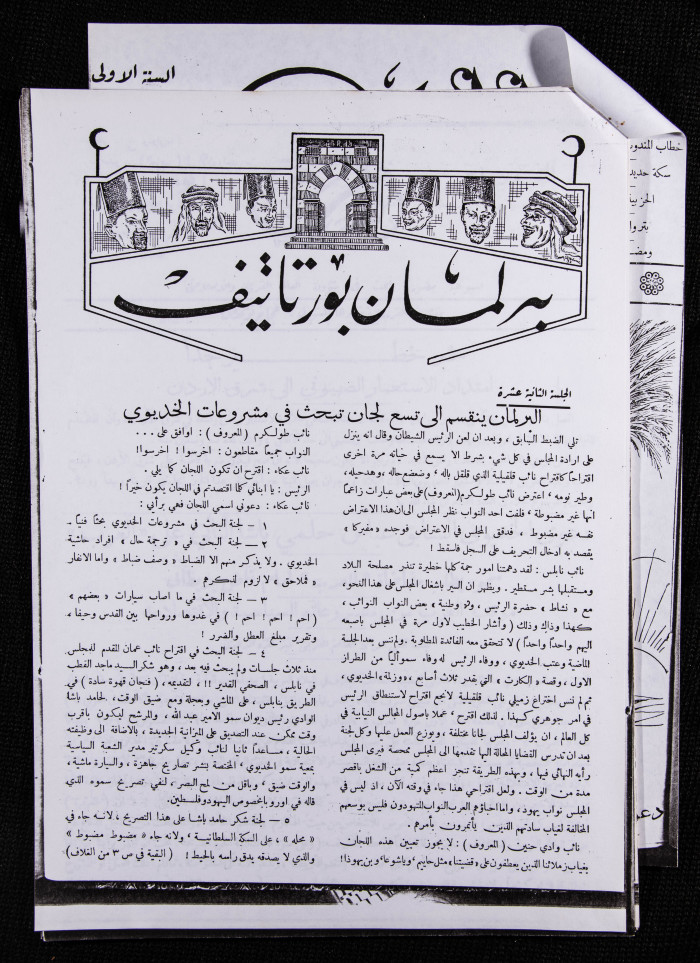 السنة الاولى
برلمان بورتاتيف
الجلسة الثانية عشرة
البرلمان ينقسم الى تسع لجان تبحث في مشروعات الخديوي
تلي الضبط السابق ، وبعد ان لعن الرئيس الشيطان وقال انه ينزل
على ارادة المجلس في كل شيء بشرط الا يسمع في حياته مرة اخرى
اقتراحاً كاقتراح نائب قلقيلية الذي قلقل باله ، وضعضع حاله ،وهدحيله،
وطير نومه ، اعترض نائب طولكرم (المعروف)على بعض عبارات زاعماً
انها غير مضبوطة ، فلفت احد النواب نظر المجلس الى ان هذا الاعتراض
نفسه غير مضبوط ، فدقق المجلس في الاعتراض فوجده « مفبركا »
يقصد به ادخال التحريف على السجل فاسقط !
نائب نابلس : لقد دهمتنا امور جمة كلها خطيرة تنذر مصلحة البلاد
ومستقبلها بشر مستطير . ويظهر ان السير باشغال المجلس على هذا النحو،
مع « نشاط » حضرة الرئيس ، و« وطنية » بعض النواب النوائب ،
كهذا وذاك وذلك ( وأشار الخطيب لاول مرة في المجلس باصبعه
اليهم واحداً واحداً ) لا تتحقق معه الفائدة المطلوبة .ولم ننس بعد الجلسة
الماضية وعتب الخديوي ، ووفاء الرئيس له وفاء سموألياً من الطراز
الاول ، وقصة « الكارت » التي بقدر ثلاث أصابع ،،وزلة الخديوي،
ثم لم ننس اختراع زميلي نائب قلقيلية لانجع اقتراح لاستنطاق الرئيس
في امر جوهري كهذا . لذلك اقترح ، عملا باصول المجالس النيابية في
كل العالم ، ان يؤلف المجلس لجانا مختلفة ، ويوزع العمل عليها وكل لجنة
بعد ان تدرس القضايا المحالة اليها تقدمها الى المجلس ممحصة فيرى المجلس
رأيه النهائي فيها ، وبهذه الطريقة تنجز اعظم كمية من الشغل باقصر
مدة من الوقت . ولعل اقتراحي هذا جاء في وقته الآن ، اذ ليس في
المجلس نواب يهود ، واما اخواؤهم العرب النواب المتهودون فليس بوسعهم
المخالفة لغياب سادتهم الذين يأتمرون بأمرهم .
نائب وادي حنين ( المعروف ) : لا يجوز تعيين هذه اللجان
بغياب زملائنا الذين يعطفون على « قضيتنا » مثل حاييم ، وياشوعا ، وبن يهوذا!
نائب طولكرم ( المعروف ) : اوافق على . . .
النواب جميعاً مقاطعون : اخرسوا ! اخرسوا!
نائب عكاء : اقترح ان تكون اللجان كما يلي .
الرئيس : يا ابنائي كلما اقتصدتم في اللجان يكون خيراً !
نائب عكاء : دعوني اسمي اللجان فهي برأيي :
١ – لجنة البحث في مشروعات الخديوي بحثاً فنياً.
٢ – لجنة البحث في « ترجمة حال » افراد حاشية
الخديوي . ولا يذكر منهم الا الضباط « وصف ضباط » واما الانفار
« فملاحق » لا لزوم لذكرهم .
٣ – لجنة البحث في ما اصاب سيارات « بعضهم »
( احم ! احم ! احم ! ) في غدوها ورواحها بين القدس وحيفاء،
وتقرير مبلغ العطل والضرر !
٤ – لجنة البحث في اقتراح نائب عمان المقدم للمجلس
منذ ثلاث جلسات ولم يبحث فيه بعد ، وهو شكر السيد ماجد القطب
في نابلس ، الصحفي القدير !! ، لتقديمه ، ( فنجان قهوة سادة ) في
الطريق بنابلس ، على الماشي وبعجلة ومع ضيق الوقت، لحامد باشا
الوادي رئيس ديوان سمو الامير عبد الله ، والمرشح ليكون باقرب
وقت ممكن عند التصديق على الميزانية الجديدة ، بالاضافة الى وظيفته
الحالية ، مساعداً ثانيا لنائب وكيل سكرتير مدير الشعبة السياسية
بمعية سمو الخديوي ، المختصة بنشر تصاريح جاهزة ، والسيارة ماشية،
والوقت ضيق ، وباقل من لمح البصر ، لنفي تصريح سموه الذي
قاله في اوروبا بخصوص اليهود وفلسطين.
٥ – لجنة شكر حامد باشا على هذا التصريح ، لانه جاء في
« محله » ، على السكة السلطانية ، ولانه جاء « مضبوط مضبوط »
والذي لا يصدقه يدق راسه بالحيط ! ( البقية في ص ٣ من الغلاف)
سكة حديد